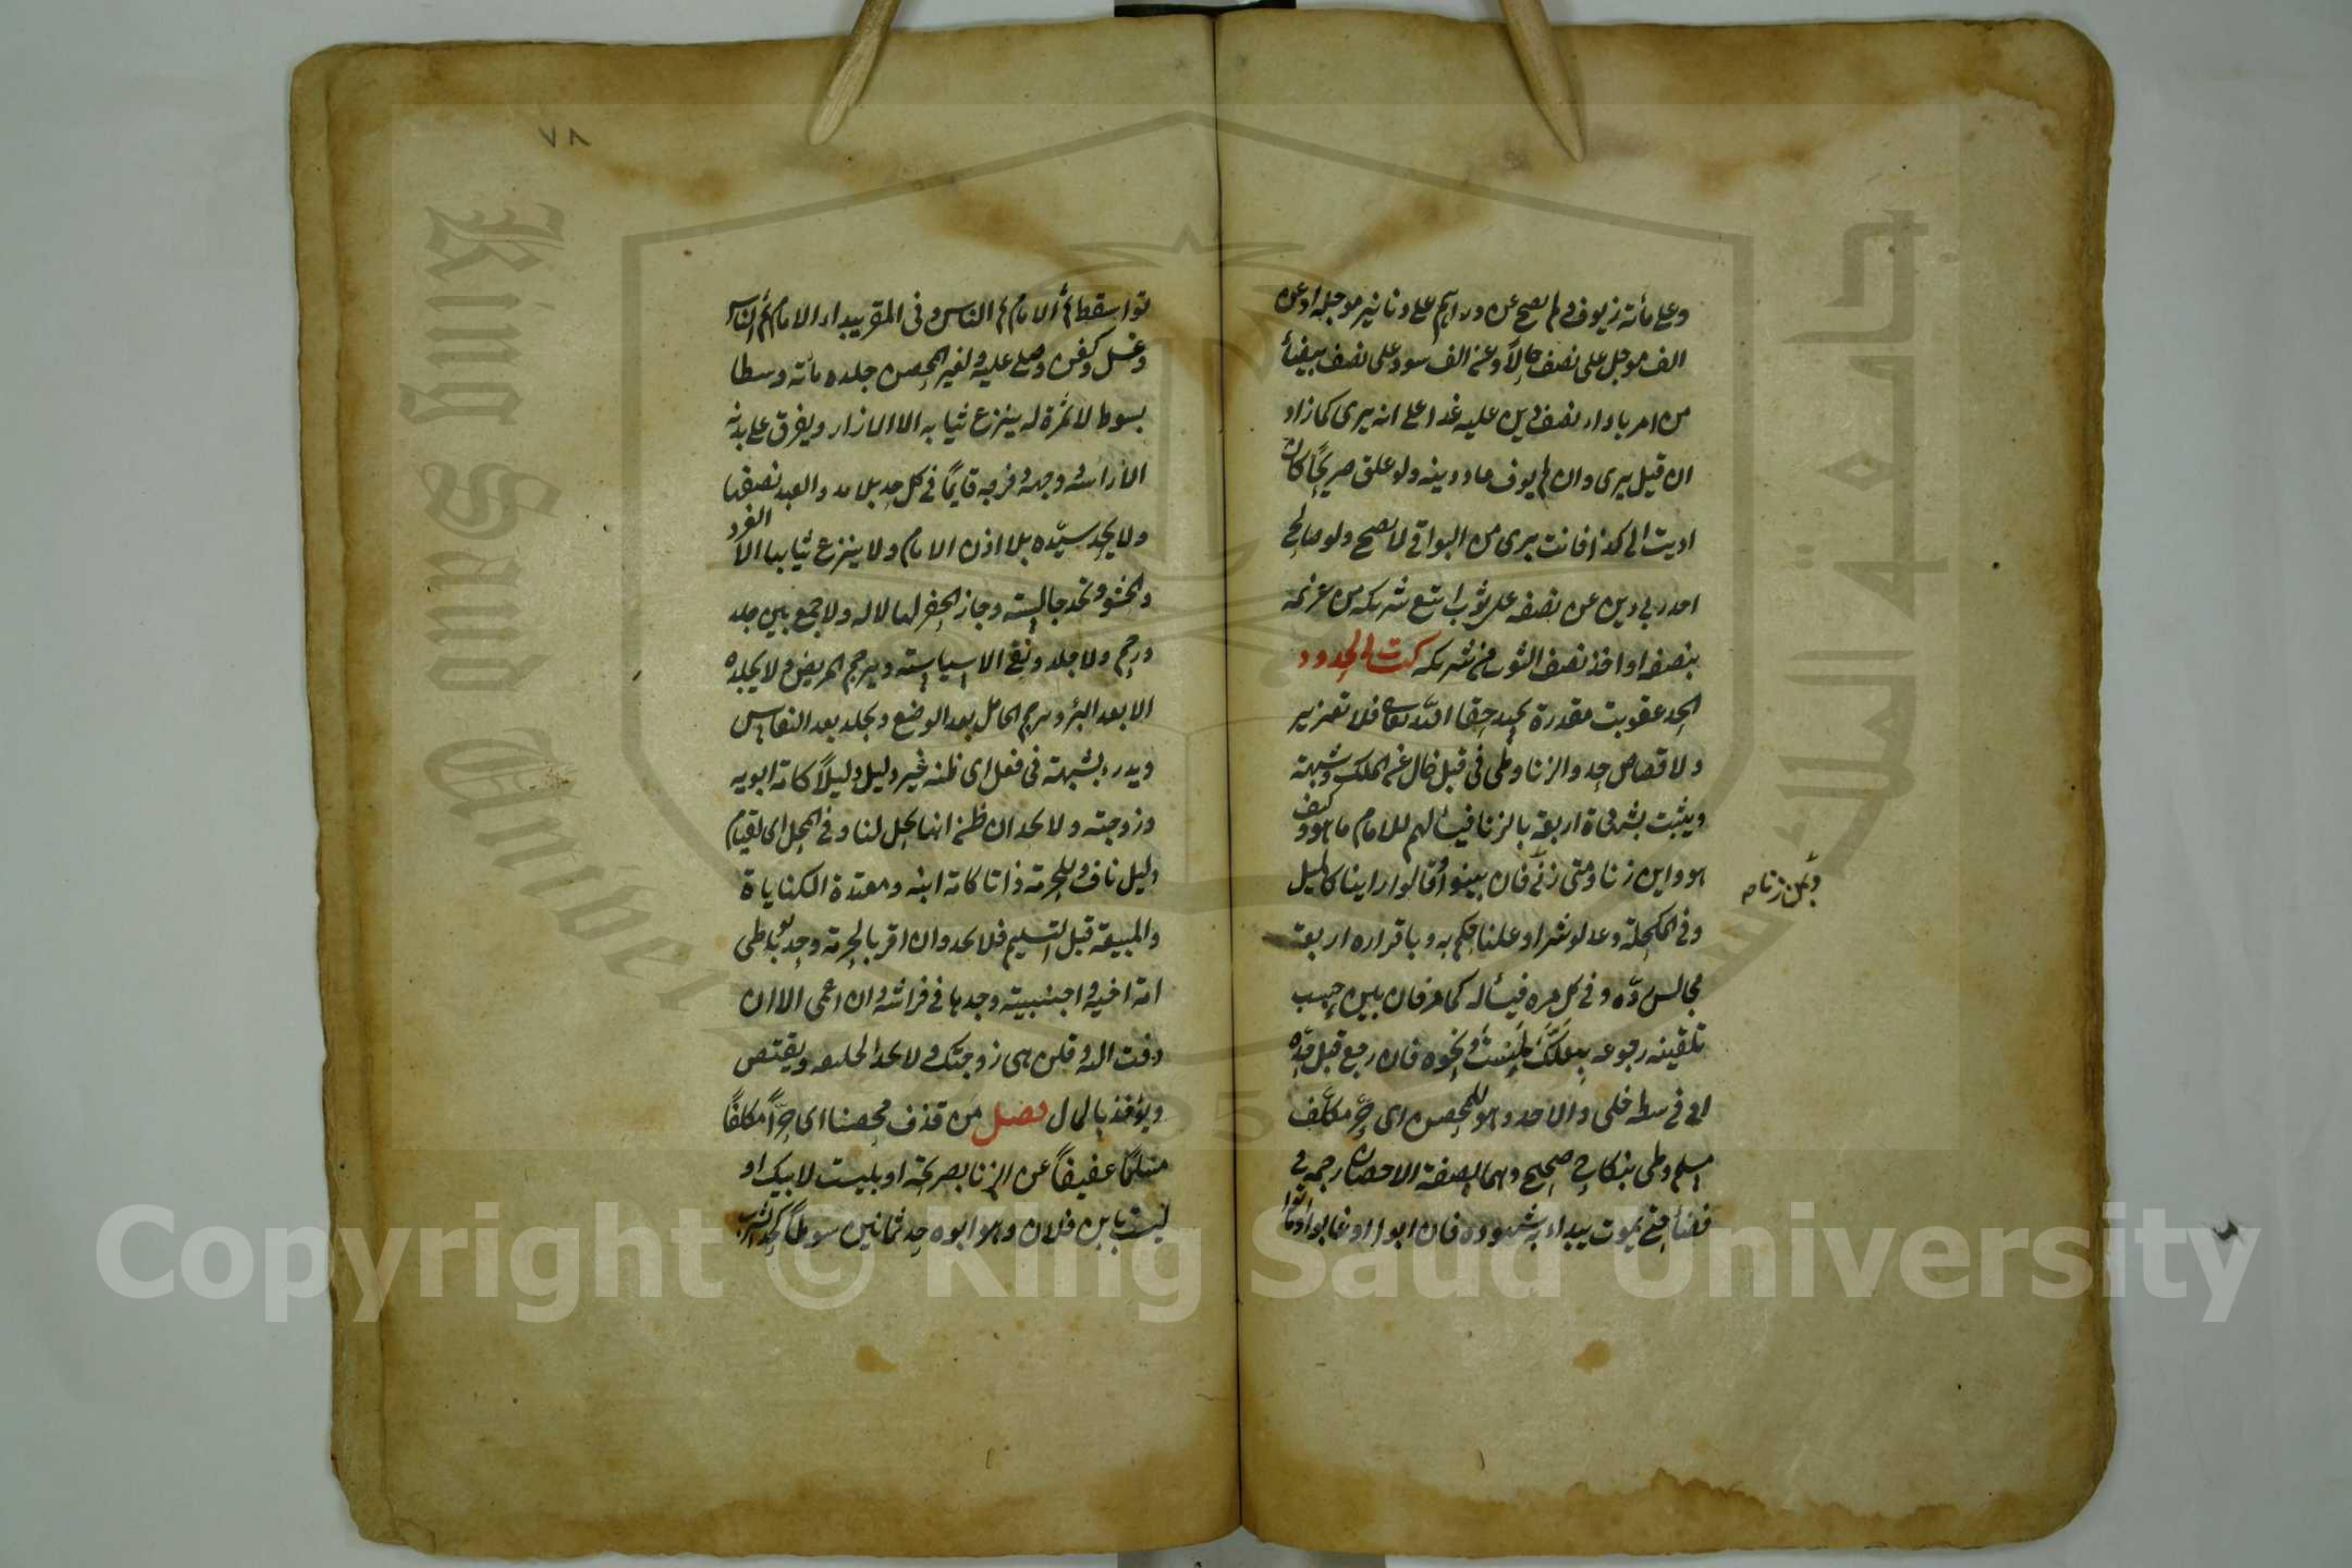 وعلى مائة زيوف ولم يصح عن دراهم على دنانير موجلة او عن
الف موجل على نصف حالا وعن الف سود على نصف بيضا
من امر باداء نصف دين عليه غدا على انه بري مما زاد
ان قبل بري وان لم يوف عاد دينه ولو علق صريحا كان
اديت الى كذا فانت بري من البواقي لا يصح ولو صالح
احد ربي دين عن نصفه على ثوب اتبع شريكه من غريمه
بنصفه او اخذ نصف الثوب من شريكه كتاب الحدود
الحد عقوبة مقدرة يجب حقا الله تعالى فلا تعزير
ولا قصاص حد والزنا وطى في قبل خال عن الملك وشبهته
ويثبت بشهادة اربعة بالزنا فيسألهم للامام ما هو وكيف
هو واين زنا ومتى زنى فان بينوا وقالوا راينا كالميل
وبمن زنا صح
وفي المكحلة وعدلو سرا وعلنا حكم به وباقراره اربعة
مجالس رده وفي كل مره فيسأله كما مر فان بين حسب
تلقينه رجوعه بلعلك لمست ونحوه فان رجع قبل حده
او في وسطه خلى والا حد وهو للمحصن اى حر مكلف
مسلم وطى بنكاح صحيح وهما بصفة الاحصان رجمه في
فضاء حتى يموت يبداء به شهوده فان ابوا او غابوا او ماتوا
٧٨
توا سقط ثم الامام ثم الناس وفى المقر يبداء الامام ثم الناس
وغسل وكفن وصلى عليه ولغير المحصن جلده مائة وسطا
بسوط لا ثمرة له ينزع ثيابه الا الازار ويفرق على بدنه
الا راسه ووجهه وفرجه قايما في كل حد بلا مد والعبد نصفها
ولا يحد سيده بلا اذن الامام ولا ينزع ثيابها الا الفرو
والحشو وتحد جالسته وجاز الحفر لها لا له ولا جمع بين جلد
ورجم ولا جلد ونفى الا سياسته ويرجم المريض ولا يجلده
الا بعد البرؤ ويرجم الحامل بعد الوضع ويجلد بعد النفاس
ويدرء بشبهته فى فعل اى ظنه غير دليل دليلا كامة ابويه
وزوجته ولا يحد ان ظن انها يحل لنا وفي المحل اى لقيام
دليل ناف للحرمة ذاتا كامة ابنه ومعتدة الكنايات
والمبيعة قبل التسليم فلا يحد وان اقر بالحرمة وحد بوطى
امة اخيه واجنبية وجدها في فراشه وان اعمى الا ان
زفت اليه وقلن هى زوجتك ولا يحد الخليفه ويقتص
ويؤخذ بالمال فصل من قذف محصنا اى حرا مكلفا
مسلما عفيفا عن الزنا بصريحه او بلست لابيك او
لست بابن فلان وهو ابوه حد ثمانين سوطا كحد الشرب
King Saud University
جامعة الملك سعود
Copyright © King Saud University